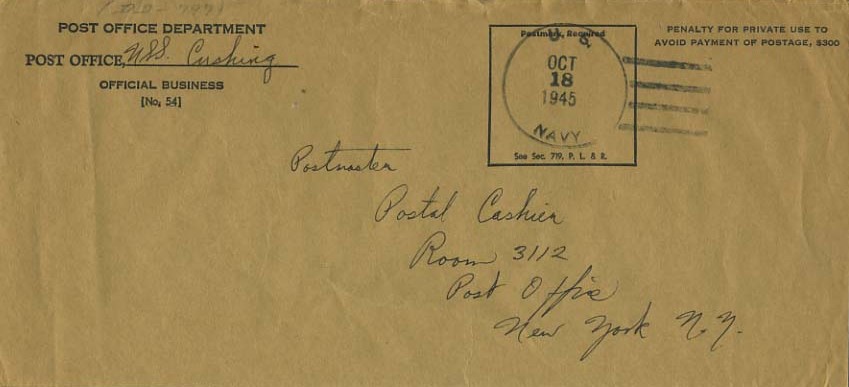 POST OFFICE DEPARTMENT
POST OFFICE, USS. Cushing
OFFICIAL BUSINESS
[No. 54]
Postmark, Required
U. S.
OCT
18
1945
NAVY
See Sec. 719, P. L. & R.
PENALTY FOR PRIVATE USE TO
AVOID PAYMENT OF POSTAGE, $300
Postmaster
Postal Cashier
Room 3112
Post Office
New York N.Y.